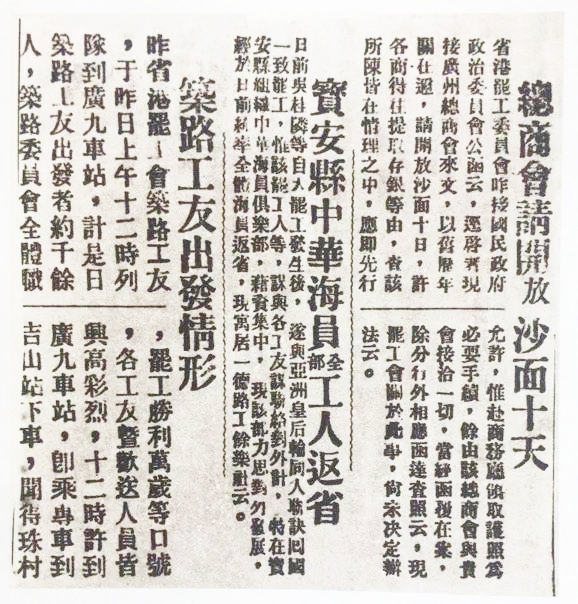 總商會請開放沙面十天
省港罷工委員會昨接國民政府
政治委員會公函云，逕啓者現
接廣州總商會來文，以舊歷年
關在邇，請開放沙面十日，許
各商得往提取存銀等由，查該
所陳皆在情理之中，應即先行
允許，惟赴商務廳領取護照為
必要手續，餘由該總商會與貴
會接洽一切，當經函復在案，
除分行外相應函達查照云，現
罷工會關於此事，尚未決定辦
法云。
寶安縣中華海員全部工人返省
日前與杜隣等自大罷工發生後，遂與亞洲皇后輪同人聯訣回國
一致罷工，惟該罷工人等，謀與各工友謀聯絡對外計，特在寶
安縣組織中華海員俱樂部，藉資集中，現該部力思對外發展，
經於日前糾率全體海員返省，現寓居一德路工餘樂社云。
築路工友出發情形
昨省港罷工會築路工友
，于昨日上午十二時列
隊到廣九車站，計是日
築路工友出發者約千餘
人，築路委員會全體職
，罷工勝利萬歲等口號
，各工友暨歡送人員皆
興高彩烈，十二時許到
廣九車站，即乘專車到
吉山站下車，聞得珠村